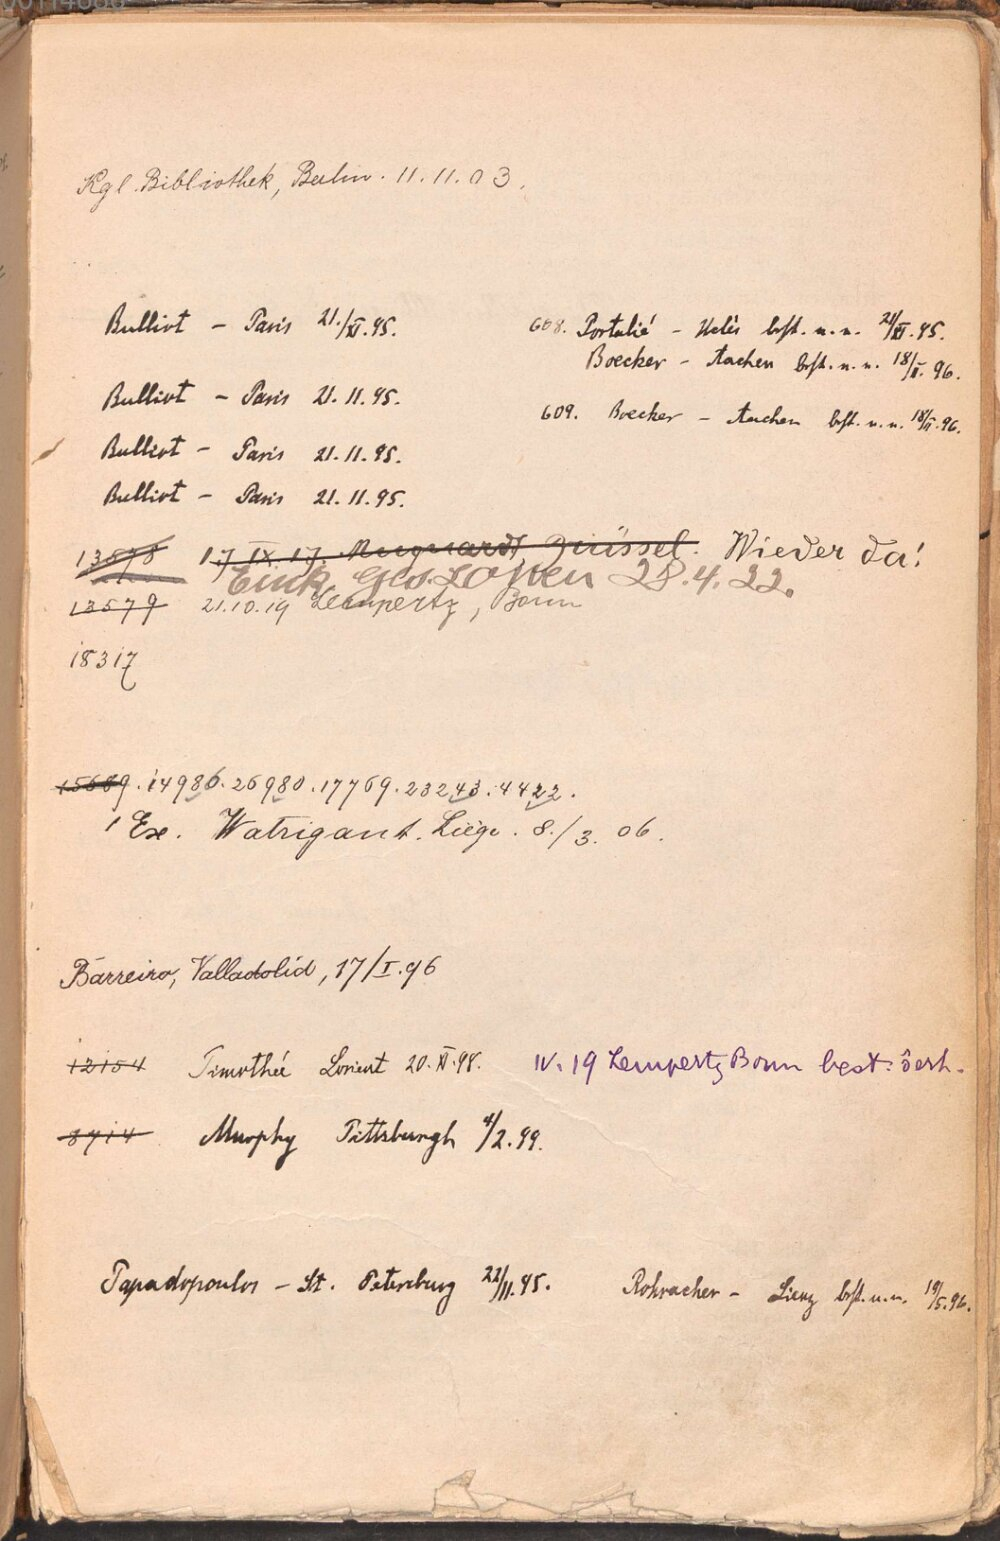 Kgl. Bibliothek, Berlin. 11.11.03.
Bulliot – Paris 21./XI.95.
608. Portalié – Uclès bst. u. u. 21/XI.95.
Boecker – Aachen bst. u. u. 18/II.96.
Bulliot – Paris 21.11.95.
609. Boecker – Aachen bst. u. u. 18/II.96.
Bulliot – Paris 21.11.95.
Bulliot – Paris 21.11.95.
13578 17 IX. 17. Muquardt, Brüssel. Wieder da!
28.4.22.
13579 21.10.19 Lempertz, Bonn
18317
15689. 14986. 26980. 17769. 23243. 4422.
1 Ex. Watrigant. Liége. 8./3. 06.
Barreiro, Valladolid, 17/I.96
12154 Timothée Lorient 20.XI.98. IV. 19 Lempertz Bonn best.
8714 Murphy Pittsburgh 4/2.99.
Papadopoulos – St. Petersburg 22/11.95. Rohracher – Lienz bst. u. u. 19/5.96.